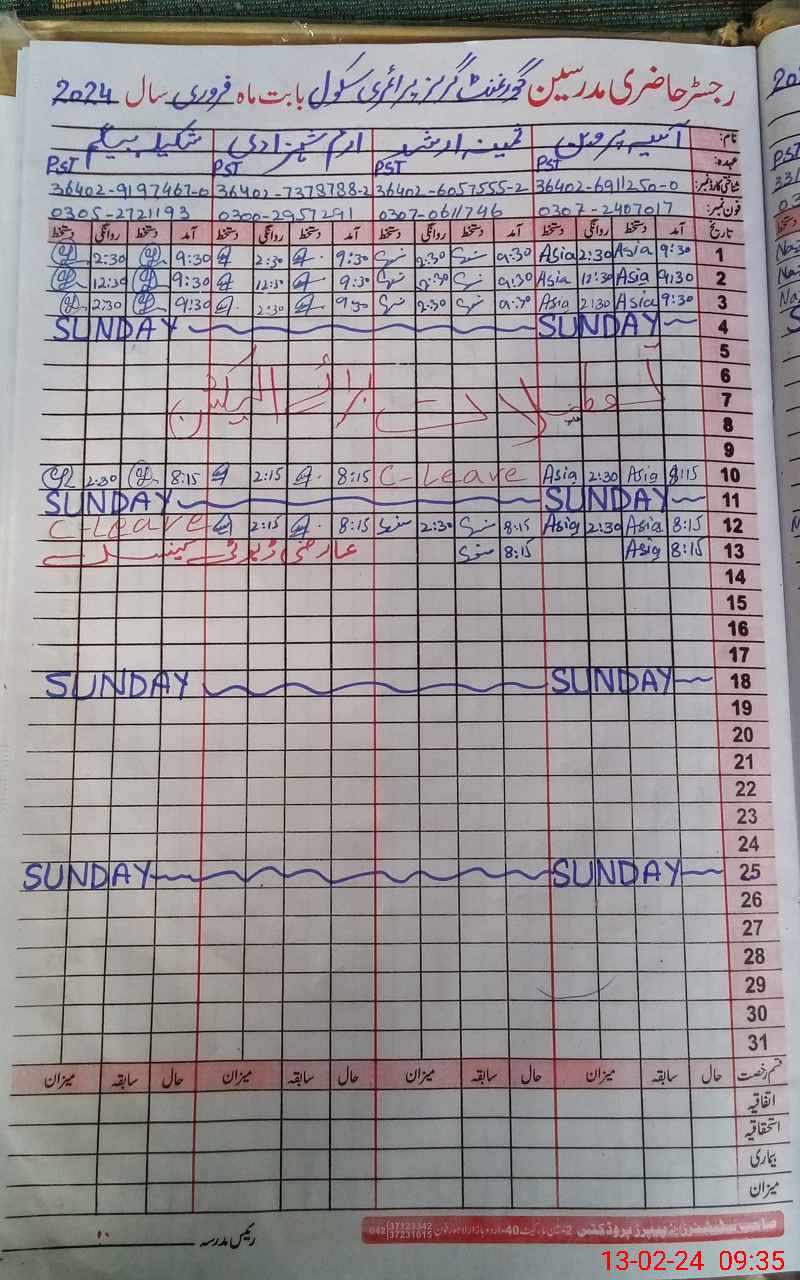 رجسٹر حاضری مدرسین گورنمنٹ گرلز پرائمری سکول بابت ماہ فروری سال 2024
نام: آسیہ پروین ثمینہ ارشد ارم شہزادی شکیلہ بیگم
عہدہ: PST PST PST PST
شناختی کارڈ نمبر: 36402-6911250-0 36402-6057555-2 36402-7378788-2 36402-9197467-0
فون نمبر: 0307-2407017 0307-0611746 0300-2957291 0305-2721193
تاریخ آمد دستخط روانگی دستخط آمد دستخط روانگی دستخط آمد دستخط روانگی دستخط آمد دستخط روانگی دستخط
1 9:30 Asia 2:30 Asia 9:30 2:30 9:30 2:30 9:30 2:30
2 9:30 Asia 12:30 Asia 9:30 2:30 9:30 12:30 9:30 12:30
3 9:30 Asia 2:30 Asia 9:30 2:30 9:30 2:30 9:30 2:30
4 SUNDAY SUNDAY
5
6
7 تعطیلات برائے الیکشن
8
9
10 8:15 Asia 2:30 Asia C-Leave 8:15 2:15 8:15 2:30
11 SUNDAY SUNDAY
12 8:15 Asia 2:30 Asia 8:15 2:30 8:15 2:15 C-Leave
13 8:15 Asia 8:15 عارضی ڈیوٹی کینسل
14
15
16
17
18 SUNDAY SUNDAY
19
20
21
22
23
24
25 SUNDAY SUNDAY
26
27
28
29
30
31
قسم رخصت حال سابقہ میزان حال سابقہ میزان حال سابقہ میزان حال سابقہ میزان
اتفاقیہ
استحقاقیہ
بیماری
میزان
رئیس مدرسہ
042 37123342
37231015
13-02-24 09:35